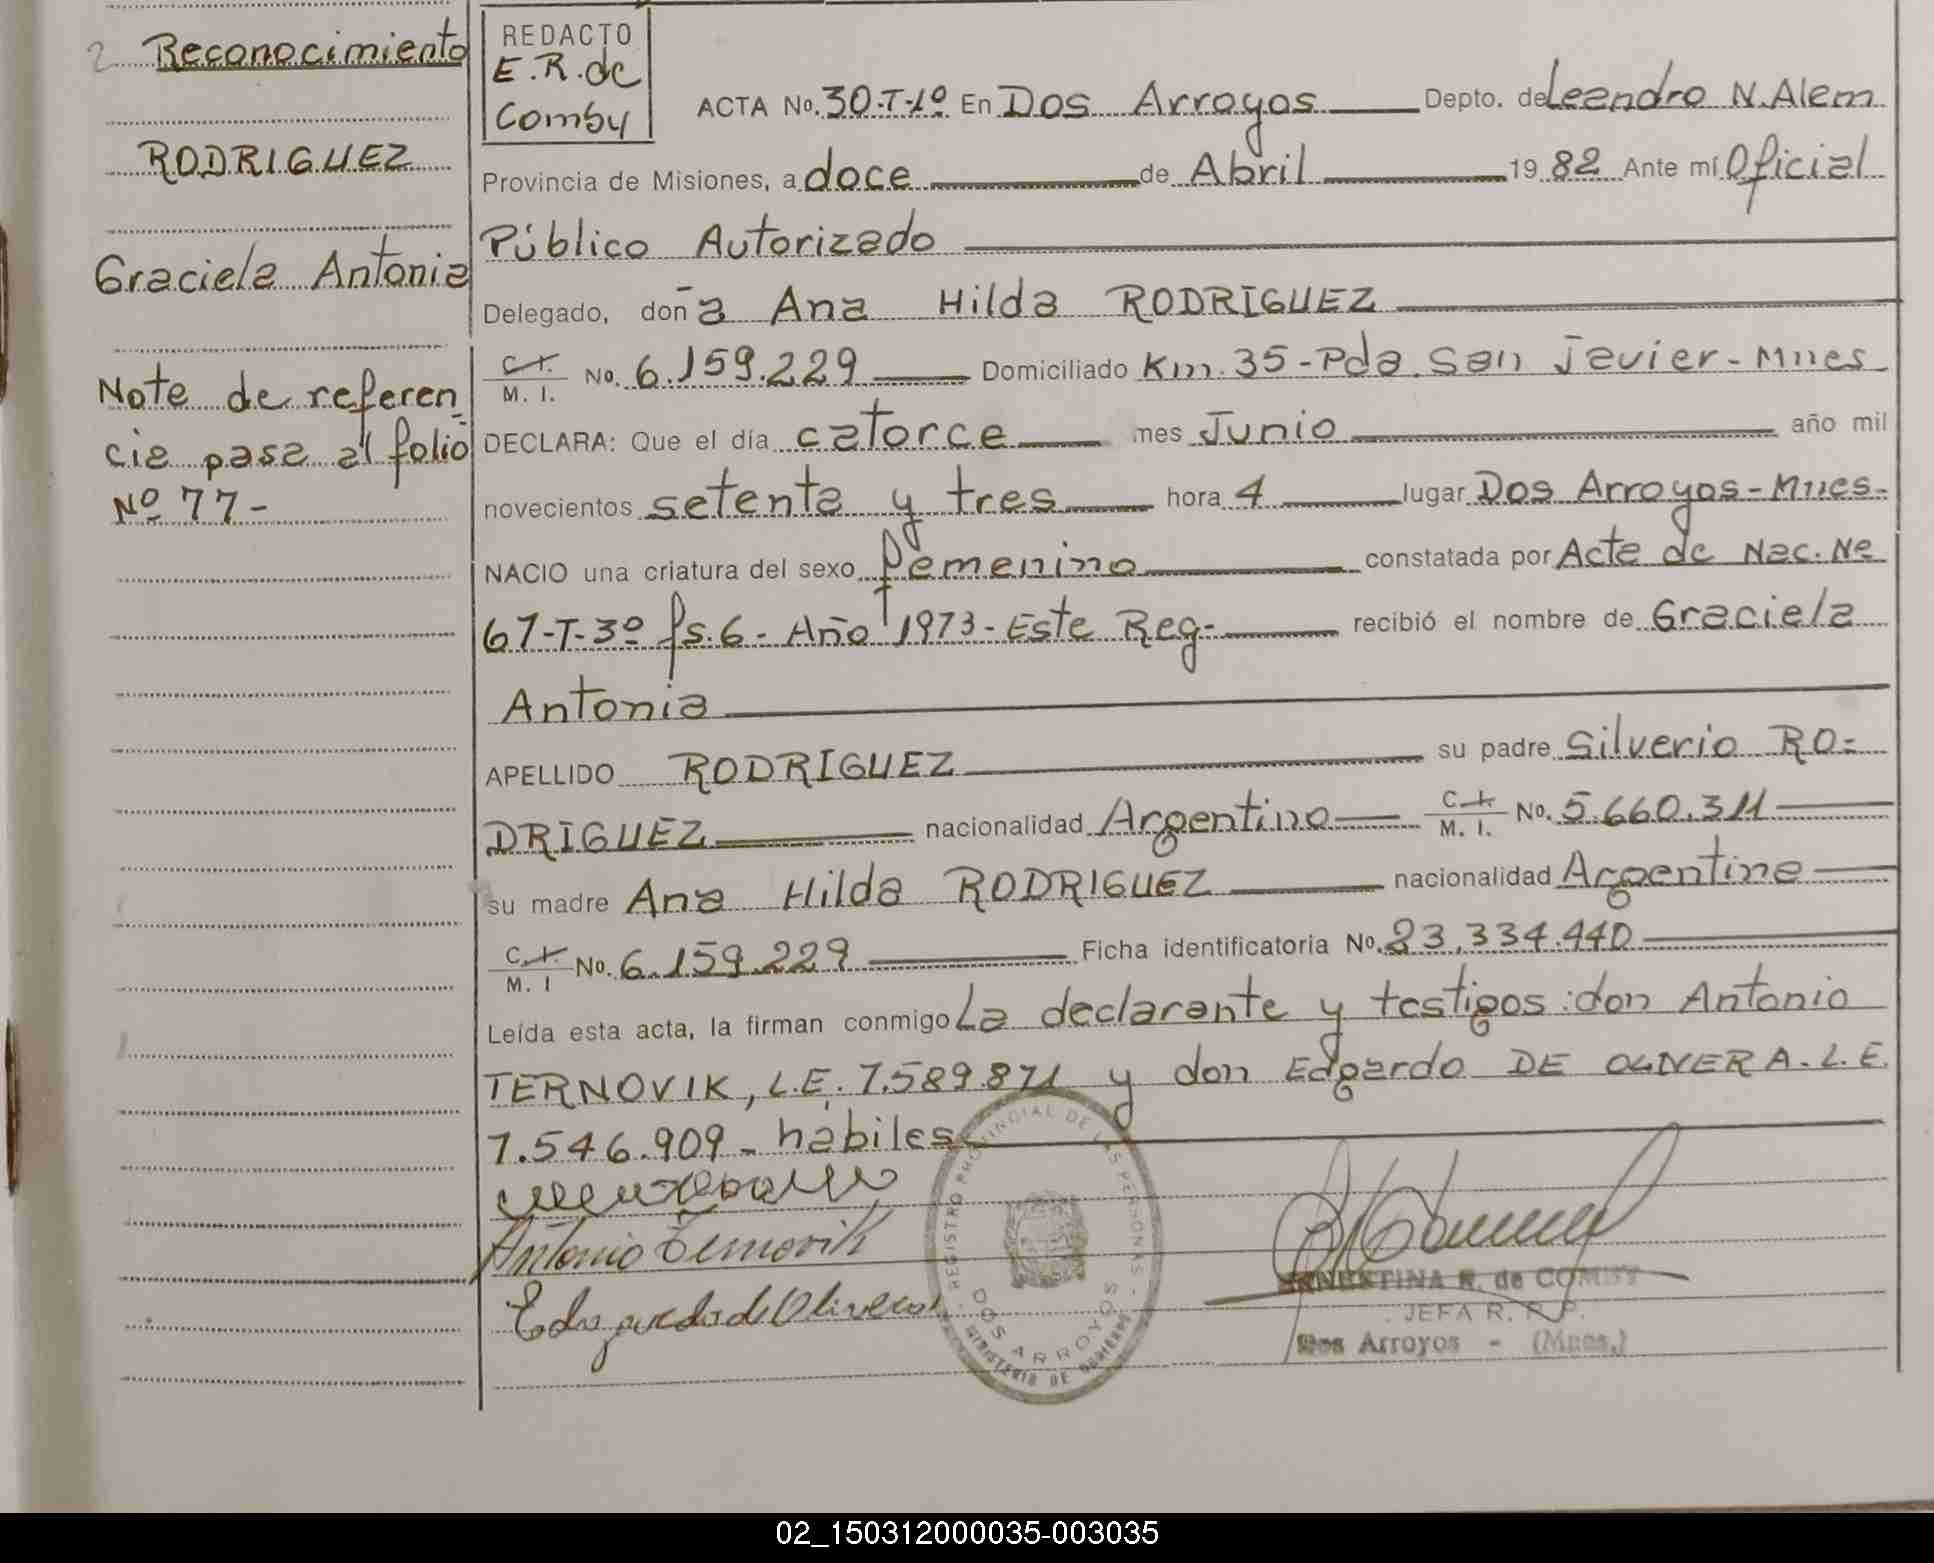 2 Reconocimiento
RODRIGUEZ
Graciela Antonia
Note de referen
cia pasa al folio
Nº 77-
REDACTO
E.R.de
Comby
ACTA No. 30-T-1º En Dos Arroyos Depto. de Leandro N. Alem
Provincia de Misiones, a doce de Abril 1982 Ante mí Oficial
Público Autorizado
Delegado, doña Ana Hilda RODRIGUEZ
C. I.
M. I. No. 6.159.229 Domiciliado Km. 35-Pda. San Javier-Mnes
DECLARA: Que el día catorce mes Junio año mil
novecientos setenta y tres hora 4 lugar Dos Arroyos-Mnes-
NACIO una criatura del sexo femenino constatada por Acta de Nac. Nº
67-T-3º fs. 6- Año 1973- Este Reg- recibió el nombre de Graciela
Antonia
APELLIDO RODRIGUEZ su padre Silverio RO=
DRIGUEZ nacionalidad Argentino C. I. M. I. No. 5.660.311
su madre Ana Hilda RODRIGUEZ nacionalidad Argentina
C. I. M. I No. 6.159.229 Ficha identificatoria No. 23.334.440
Leída esta acta, la firman conmigo La declarante y testigos: don Antonio
TERNOVIK, L.E. 7.589.871 y don Edgardo DE OLIVERA. L.E.
7.546.909- hábiles
Antonio Ternovik
REGISTRO PROVINCIAL DE LAS PERSONAS
DOS ARROYOS
MINISTERIO DE GOBIERNO
ERNESTINA R. de COMBY
JEFA R. R. P.
Dos Arroyos - (Mnes.)
02_150312000035-003035